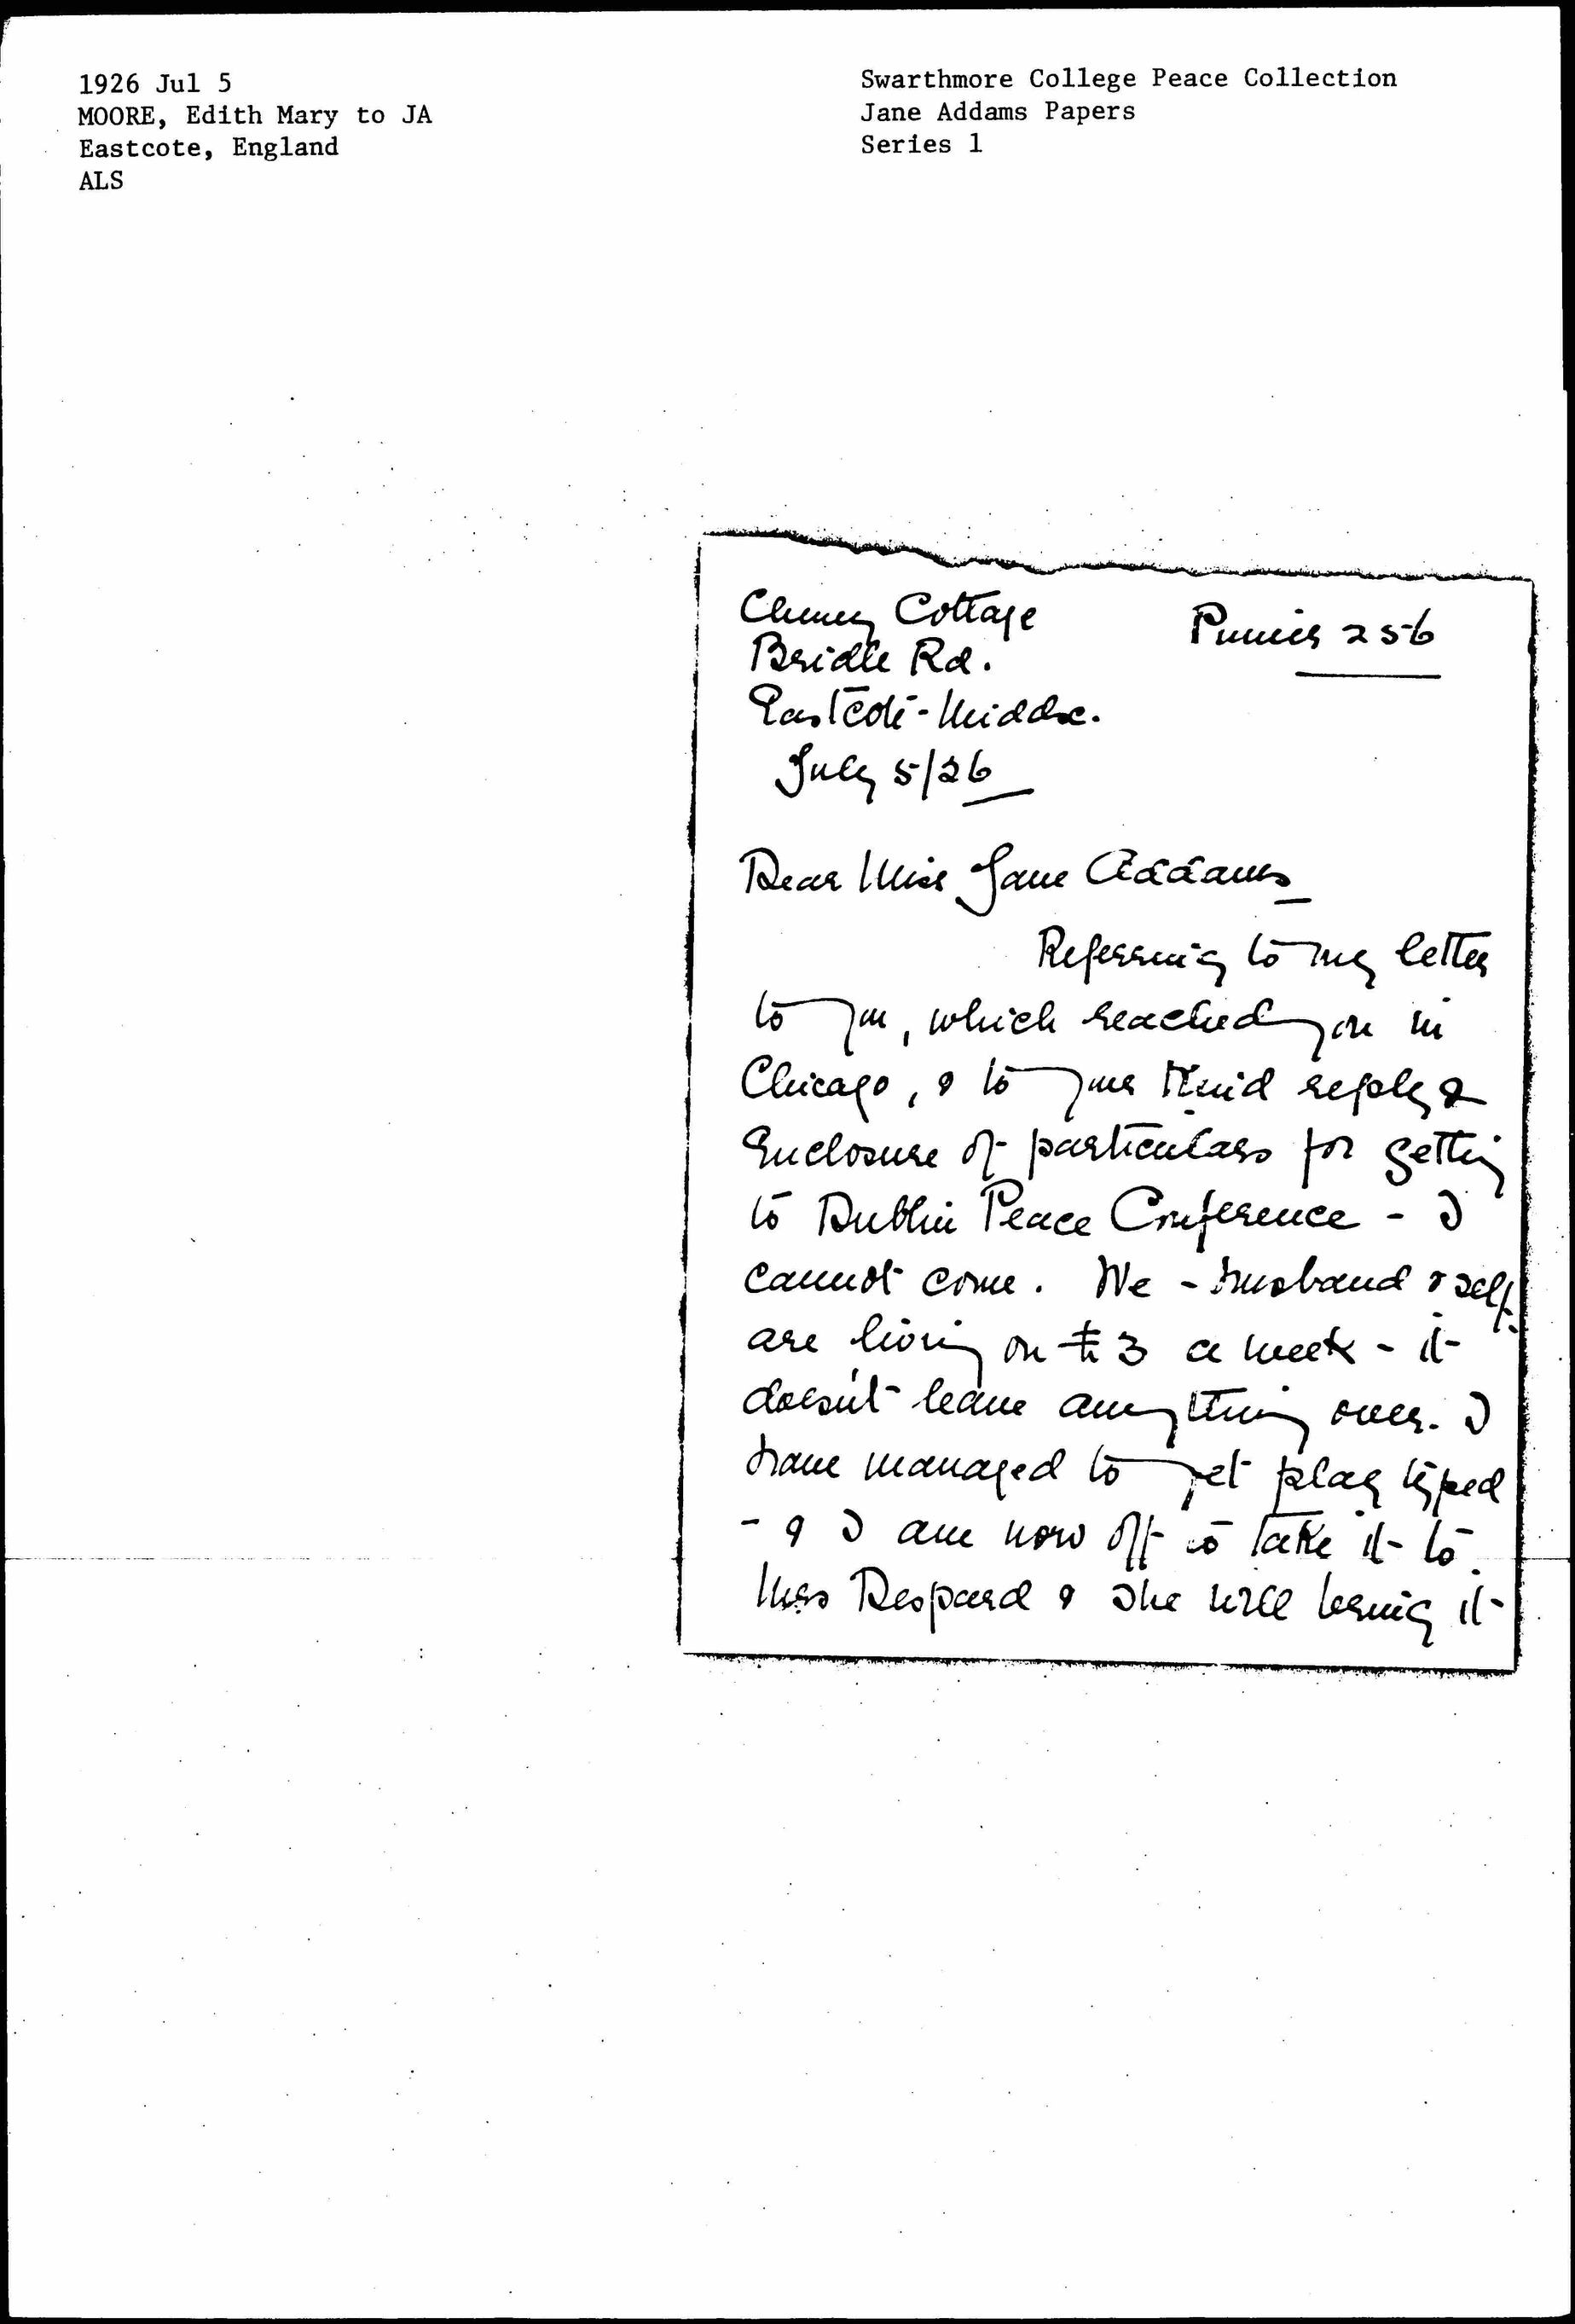 1926 Jul 5
MOORE, Edith Mary to JA
Eastcote, England
ALS
Swarthmore College Peace Collection
Jane Addams Papers
Series 1
Cottage
Pinner 256
Bridle Rd.
Eastcote - Middx.
July 5/26
Dear Miss Jane Addams
Referring to my letter
to you, which reached you in
Chicago, & to your kind reply &
Enclosure of particulars for getting
to Dublin Peace Conference - I
cannot come. We - husband & self -
are living on £3 a week - it
doesn't leave anything over. I
have managed to get play typed
- & I am now off to take it to
Mrs Despard & she will bring it